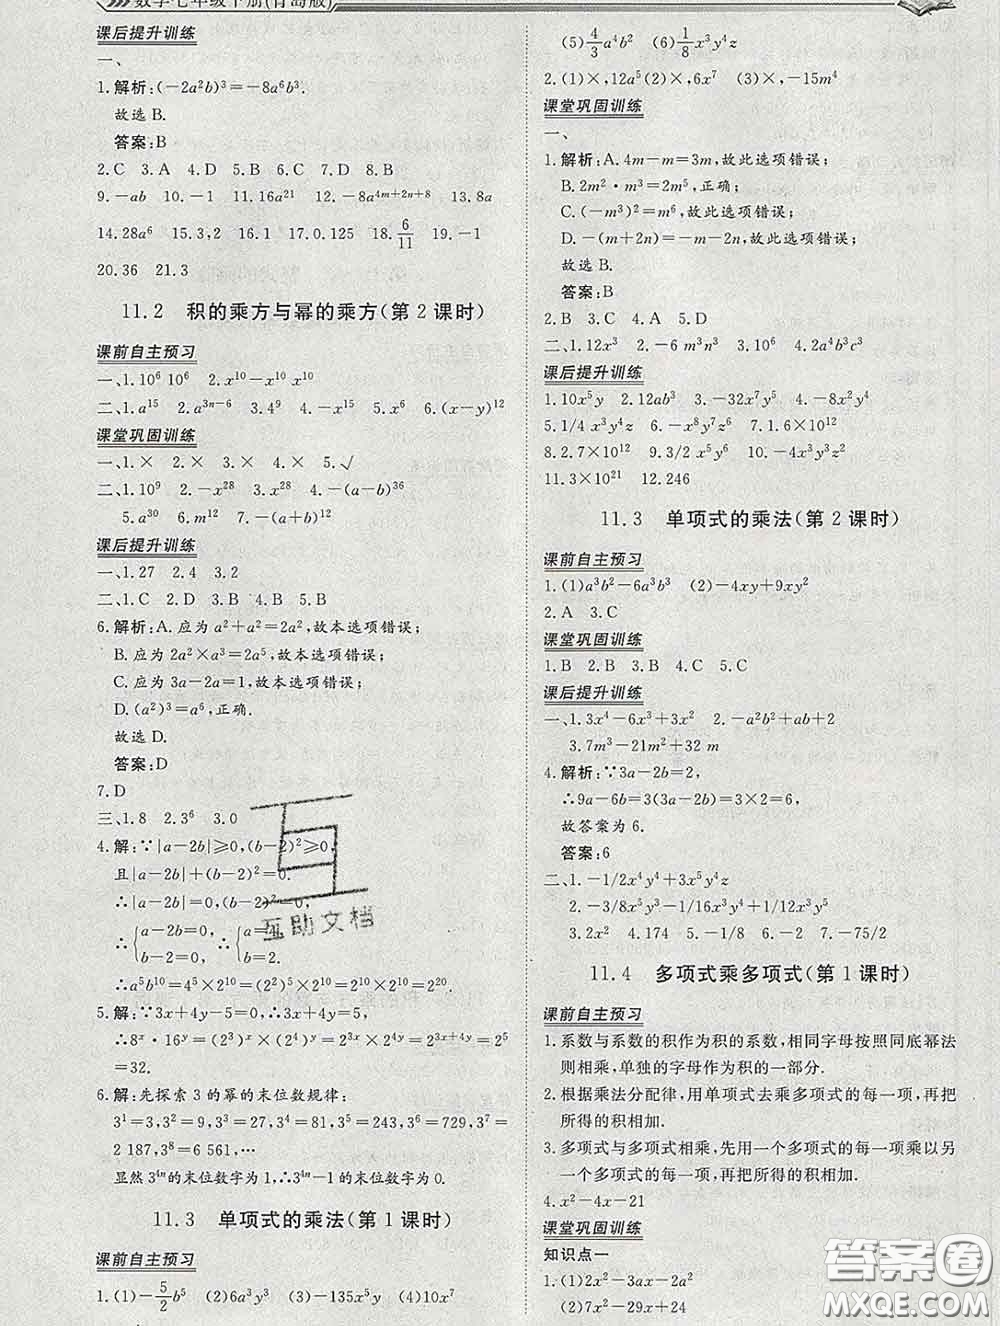 数学七年级下册(青岛版)
课后提升训练
一、
1.解析:(-2a²b)³=-8a⁶b³.
故选 B.
答案:B
2.C 3.A 4.D 5.B 6.C 7.D 8.B
9.-ab 10.-1 11.16a²¹ 12.-8a⁴ᵐ⁺²ⁿ⁺⁸ 13.8a
14.28a⁶ 15.3,2 16.1 17.0.125 18.6/11 19.-1
20.36 21.3
11.2 积的乘方与幂的乘方(第 2 课时)
课前自主预习
一、1.10⁶ 10⁶ 2.x¹⁰-x¹⁰ x¹⁰
二、1.a¹⁵ 2.a³ⁿ⁻⁶ 3.4⁹ 4.-x¹⁵ 5.x⁶ 6.(x-y)¹²
课堂巩固训练
一、1.× 2.× 3.× 4.× 5.√
二、1.10⁹ 2.-x²⁸ 3.x²⁸ 4.-(a-b)³⁶
5.a³⁰ 6.m¹² 7.-(a+b)¹²
课后提升训练
一、1.27 2.4 3.2
二、1.C 2.D 3.B 4.B 5.B
6.解析:A.应为 a²+a²=2a²,故本选项错误;
B.应为 2a²×a³=2a⁵,故本选项错误;
C.应为 3a-2a=1,故本选项错误;
D.(a²)³=a⁶,正确.
故选 D.
答案:D
7.D
三、1.8 2.3⁶ 3.0
4.解:∵|a-2b|≥0,(b-2)²≥0,
且|a-2b|+(b-2)²=0.
∴|a-2b|=0,(b-2)²=0,
∴{a-2b=0, b-2=0, ∴{a=4, b=2.
∴a⁵b¹⁰=4⁵×2¹⁰=(2²)⁵×2¹⁰=2¹⁰×2¹⁰=2²⁰.
5.解:∵3x+4y-5=0,∴3x+4y=5,
∴8ˣ·16ʸ=(2³)ˣ×(2⁴)ʸ=2³ˣ×2⁴ʸ=2³ˣ⁺⁴ʸ=2⁵=32.
6.解:先探索 3 的幂的末位数规律:
3¹=3,3²=9,3³=27,3⁴=81,3⁵=243,3⁶=729,3⁷=
2 187,3⁸=6 561,…
显然 3⁴ⁿ的末位数字为 1,∴3⁴ⁿ-1 的末位数字为 0.
11.3 单项式的乘法(第 1 课时)
课前自主预习
1.(1)-5/2b⁵ (2)6a³y³ (3)-135x⁵y (4)10x³y
(5)4/3a⁴b² (6)1/8x³y⁴z
2.(1)×,12a⁵(2)×,6x⁷ (3)×,-15m⁴
课堂巩固训练
一、
1.解析:A.4m-m=3m,故此选项错误;
B.2m²·m³=2m⁵,正确;
C.(-m³)²=m⁶,故此选项错误;
D.-(m+2n)=-m-2n,故此选项错误;
故选 B.
答案:B
2.B 3.C 4.A 5.D
二、1.12x³ 2.-6 m³n³ 3.10⁶ 4.2a⁴b³c³
课后提升训练
1.10x⁵y 2.12ab³ 3.-32x⁷y⁵ 4.-8x²y⁴
5.1/4 x³y³z 6.-x⁸y⁷ 7.1.6×10¹²
8.2.7×10¹² 9.3/2 x⁵y⁵ 10.1.6×10¹²
11.3×10²¹ 12.246
11.3 单项式的乘法(第 2 课时)
课前自主预习
1.(1)a³b²-6a³b³ (2)-4xy+9xy²
2.A 3.C
课堂巩固训练
1.B 2.B 3.B 4.C 5.C
课后提升训练
一、1.3x⁴-6x³+3x² 2.-a²b²+ab+2
3.7m³-21m²+32 m
4.解析:∵3a-2b=2,
∴9a-6b=3(3a-2b)=3×2=6,
故答案为 6.
答案:6
二、1.-1/2x⁴y⁴+3x³y⁵z
2.-3/8x³y³-1/16x³y²+1/12x²y³
3.2x² 4.174 5.-1/8 6.-3 7.-75/2
11.4 多项式乘多项式(第 1 课时)
课前自主预习
1.系数与系数的积作为积的系数,相同字母按照同底幂法
则相乘,单独的字母作为积的一部分.
2.根据乘法分配律,用单项式去乘多项式的每一项,再把
所得的积相加.
3.多项式与多项式相乘,先用一个多项式的每一项乘以另
一个多项式的每一项,再把所得的积相加.
4.x²-4x-21
课堂巩固训练
知识点一
1.(1)2x²-3ax-2a²
(2)7x²-31x+24
互助文档
答案圈
MXQE.COM